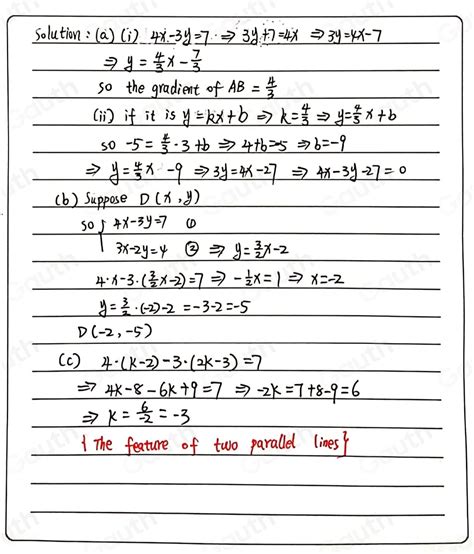 Solution : (a) (i) 4x-3y=7 ⇒ 3y+7=4x ⇒ 3y=4x-7
⇒ y = 4/3 x - 7/3
so the gradient of AB = 4/3
(ii) if it is y=kx+b ⇒ k=4/3 ⇒ y=4/3 x+b
so -5 = 4/3 · 3 +b ⇒ 4+b=-5 ⇒ b=-9
⇒ y=4/3 x -9 ⇒ 3y=4x-27 ⇒ 4x-3y-27=0
(b) Suppose D(x,y)
so { 4x-3y=7 ①
3x-2y=4 ② ⇒ y=3/2 x-2
4·x-3·(3/2 x-2)=7 ⇒ -1/2 x=1 ⇒ x=-2
y=3/2·(-2)-2 =-3-2=-5
D(-2,-5)
(c) 4·(k-2)-3·(2k-3)=7
⇒ 4k-8-6k+9=7 ⇒ -2k=7+8-9=6
⇒ k= 6/-2 =-3
{ The feature of two parallel lines }
Gauth